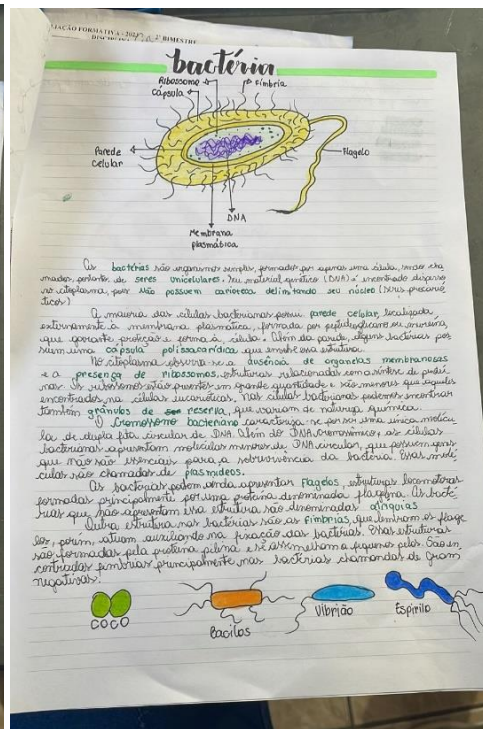 IAÇÃO FORMATIVA - 2021
2º BIMESTRE
bactéria
Ribossomo
Fímbria
Cápsula
Parede
celular
Flagelo
DNA
Membrana
plasmática
As bactérias são organismos simples, formados por apenas uma célula, sendo cha
mados, portanto, de seres unicelulares. Seu material genético (DNA) é encontrado disperso
no citoplasma, pois não possuem carioteca delimitando seu núcleo (Seres procarió
ticos)
A maioria das células bacterianas possui parede celular, localizada
externamente à membrana plasmática, formada por peptidoglicano ou mureína,
que garante proteção e forma à célula. Além da parede, alguns bactérias pos
suem uma cápsula polissacarídica que envolve essa estrutura.
No citoplasma observa-se a ausência de organelas membranosas
e a presença de ribossomos, estruturas relacionadas com a síntese de proteí
nas. Os ribossomos estão presentes em grande quantidade e são menores que aqueles
encontrados na células eucarióticas. Nas células bacterianas podemos encontrar
também grânulos de reserva, que variam de natureza química.
O Cromossomo bacteriano caracteriza-se por ser uma única molécu
la de dupla fita circular de DNA. Além do DNA cromossômico, as células
bacterianas apresentam moléculas menores de DNA circular, que possuem gens
que não são essenciais para a sobrevivência da bactéria. Essas molé
culas são chamadas de plasmídeos.
As bactérias podem ainda apresentar flagelos, estruturas locomotoras
formadas principalmente por uma proteína denominada flagelina. As bacté
rias que não apresentam essa estrutura são denominadas atríquias.
Outra estrutura nas bactérias são as fímbrias, que lembram os flage
los, porém atuam auxiliando na fixação das bactérias. Essas estruturas
são formadas pela proteína pilina e se assemelham a pequenos pelos. São en
contradas fímbrias principalmente nas bactérias chamandas de Gram
negativas!
COCO
Bacilos
Vibrião
Espirilo